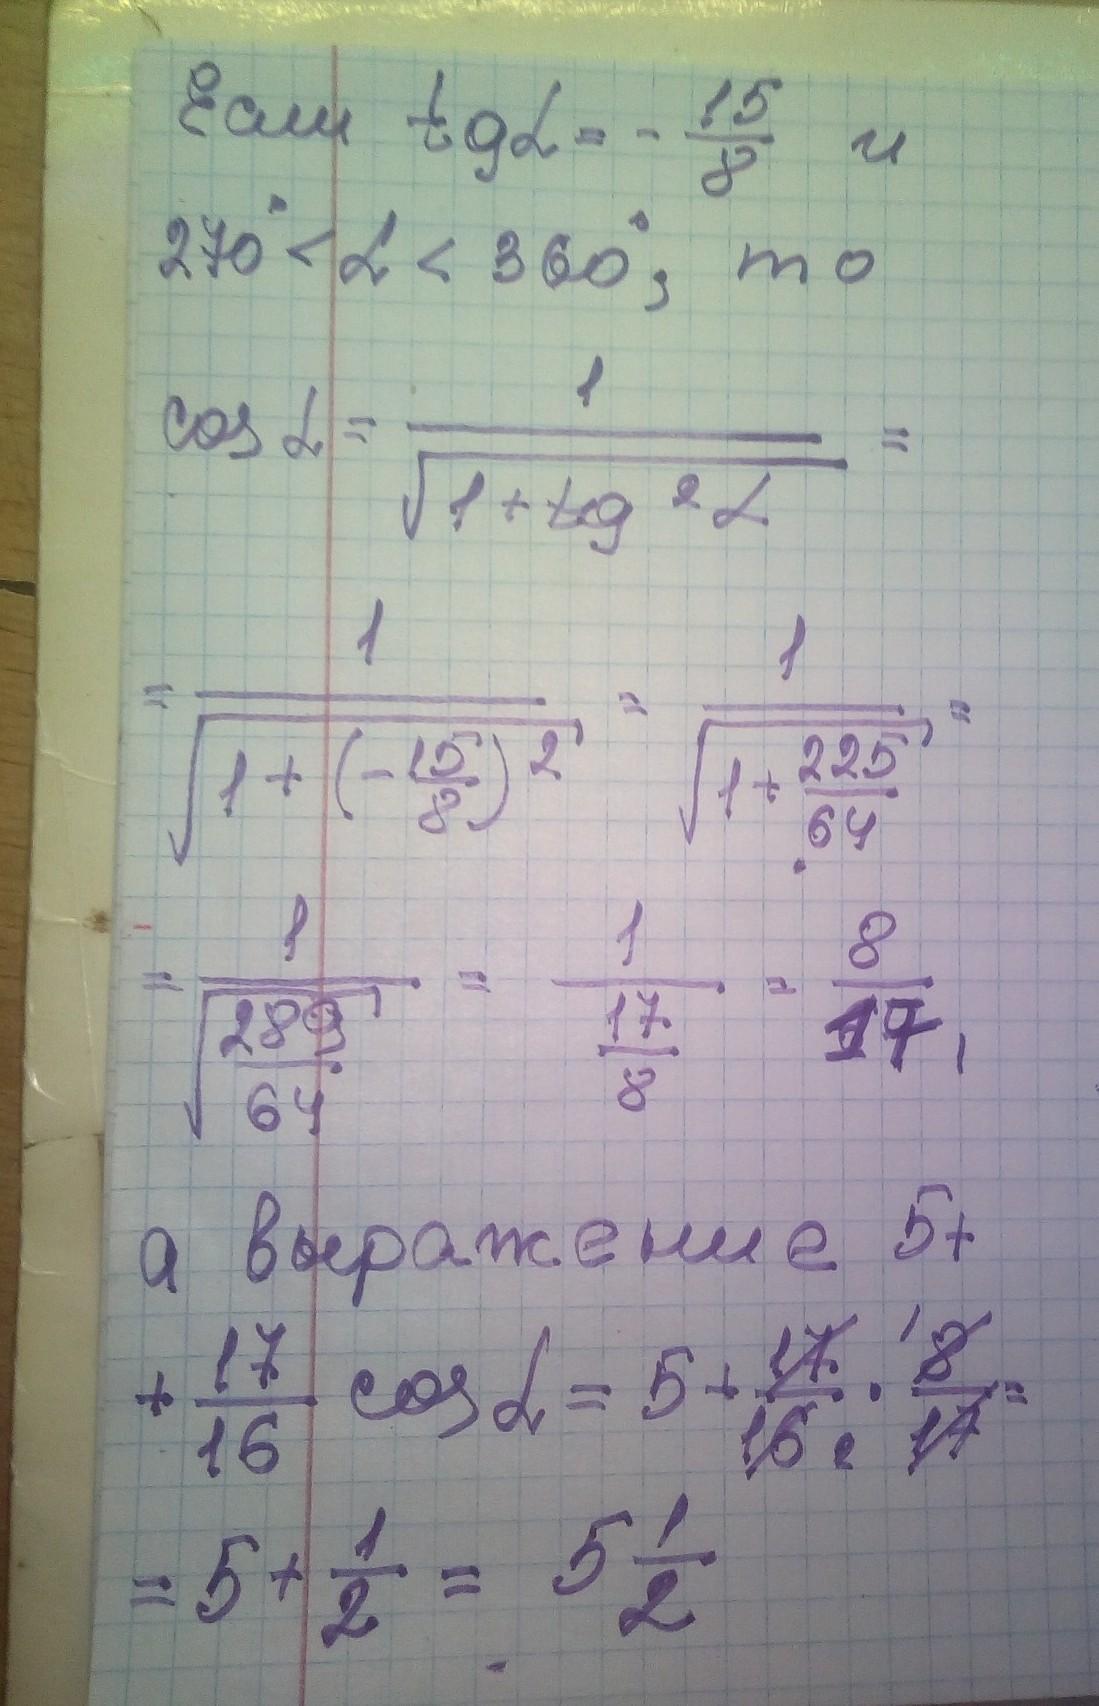 Если tgα = - 15/8 и
270° < α < 360°, то
cos α = 1/√(1 + tg²α) =
= 1/√(1 + (-15/8)²) = 1/√(1 + 225/64) =
= 1/√(289/64) = 1/(17/8) = 8/17,
а выражение 5+
+ 17/16 cos α = 5 + 17/16 · 8/17 =
= 5 + 1/2 = 5 1/2